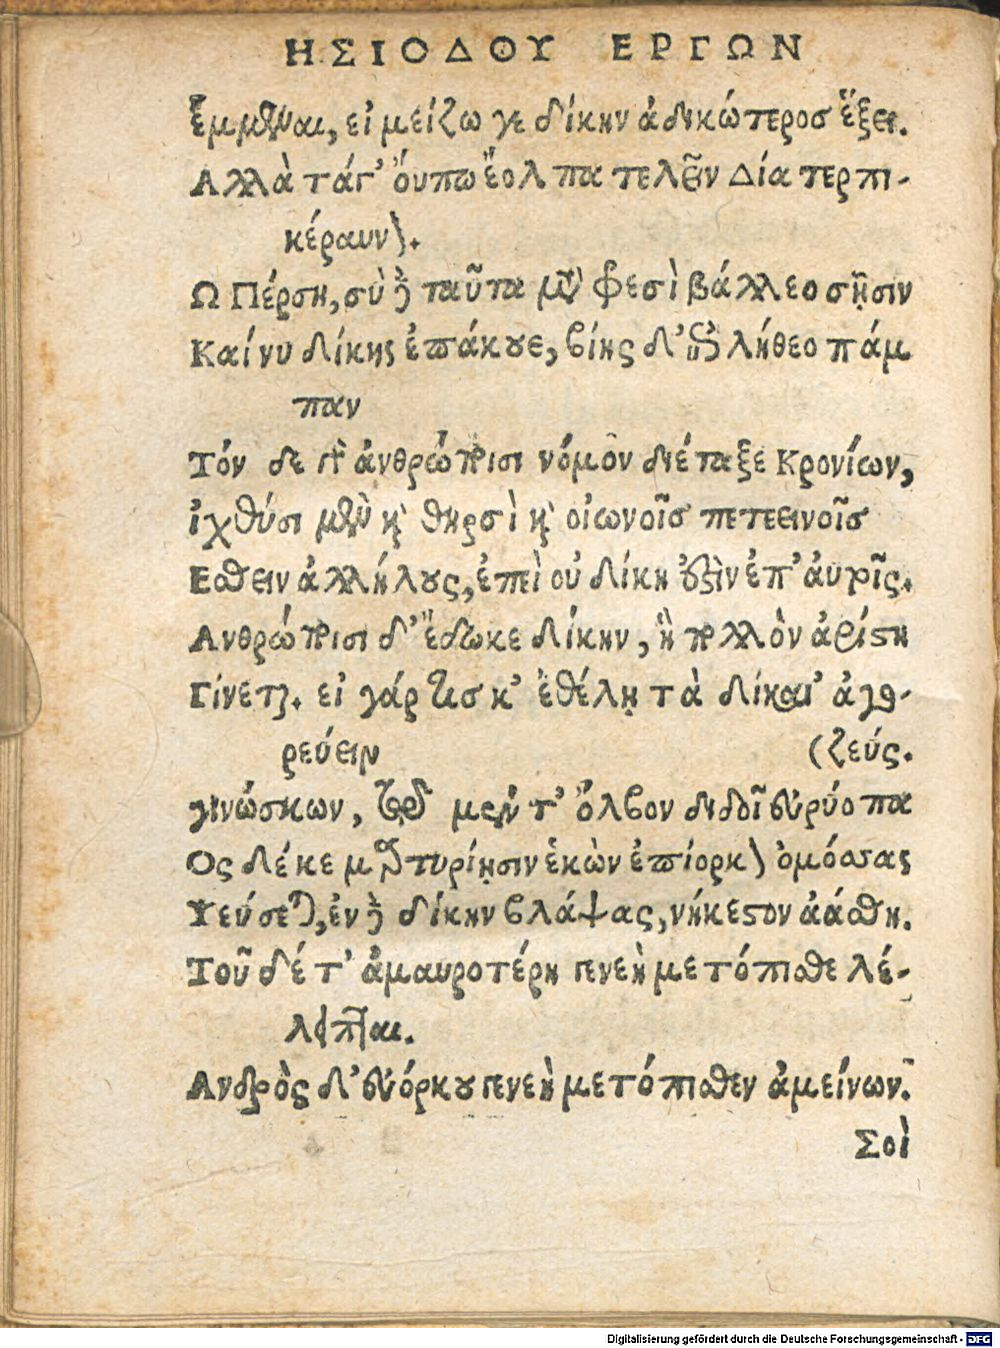 ΗΣΙΟΔΟΥ ΕΡΓΩΝ
ἔμμεναι, εἰ μείζω γε δίκην ἀδικώτεροσ ἕξει.
Αλλὰ τάγ' ὄυπω ἔολπα τελεῖν Δία τερπι-
κέραυνον.
Ω Πέρση, σὺ δὲ ταῦτα μετὰ φεσὶ βάλλεο σῇσιν
Καί νυ δίκης ἐπάκουε, βίης δ' ἐπιλήθεο πάμ
παν
Τόν δε γὰρ ἀνθρώποισι νόμον διέταξε Κρονίων,
ἰχθύσι μὲν καὶ θηρσὶ καὶ οἰωνοῖσ πετεεινοῖσ
Εσθειν ἀλλήλους, ἐπεὶ οὐ δίκη ἐστὶν ἐπ' ἀυτοῖς.
Ανθρώποισι δ' ἔδωκε δίκην, ἣ πολλὸν ἀρίστη
Γίνεται. εἰ γάρ τισ κ' ἐθέλῃ τὰ δίκαι' ἀγο-
ρεύειν (ζεύς.
γινώσκων, τῷ μέν τ' ὄλβον διδοῖ εὐρύοπα
Ος δέ κε μαρτυρίῃσιν ἑκὼν ἐπίορκον ὀμόσσας
Ψεύσεται, ἐν δὲ δίκην βλάψας, νήκεστον ἀάσθη.
Τοῦ δέ τ' ἀμαυροτέρη γενεὴ μετόπισθε λέ-
λειπται.
Ανδρὸς δ' εὐόρκου γενεὴ μετόπισθεν ἀμείνων.
Σοὶ
Digitalisierung gefördert durch die Deutsche Forschungsgemeinschaft - DFG